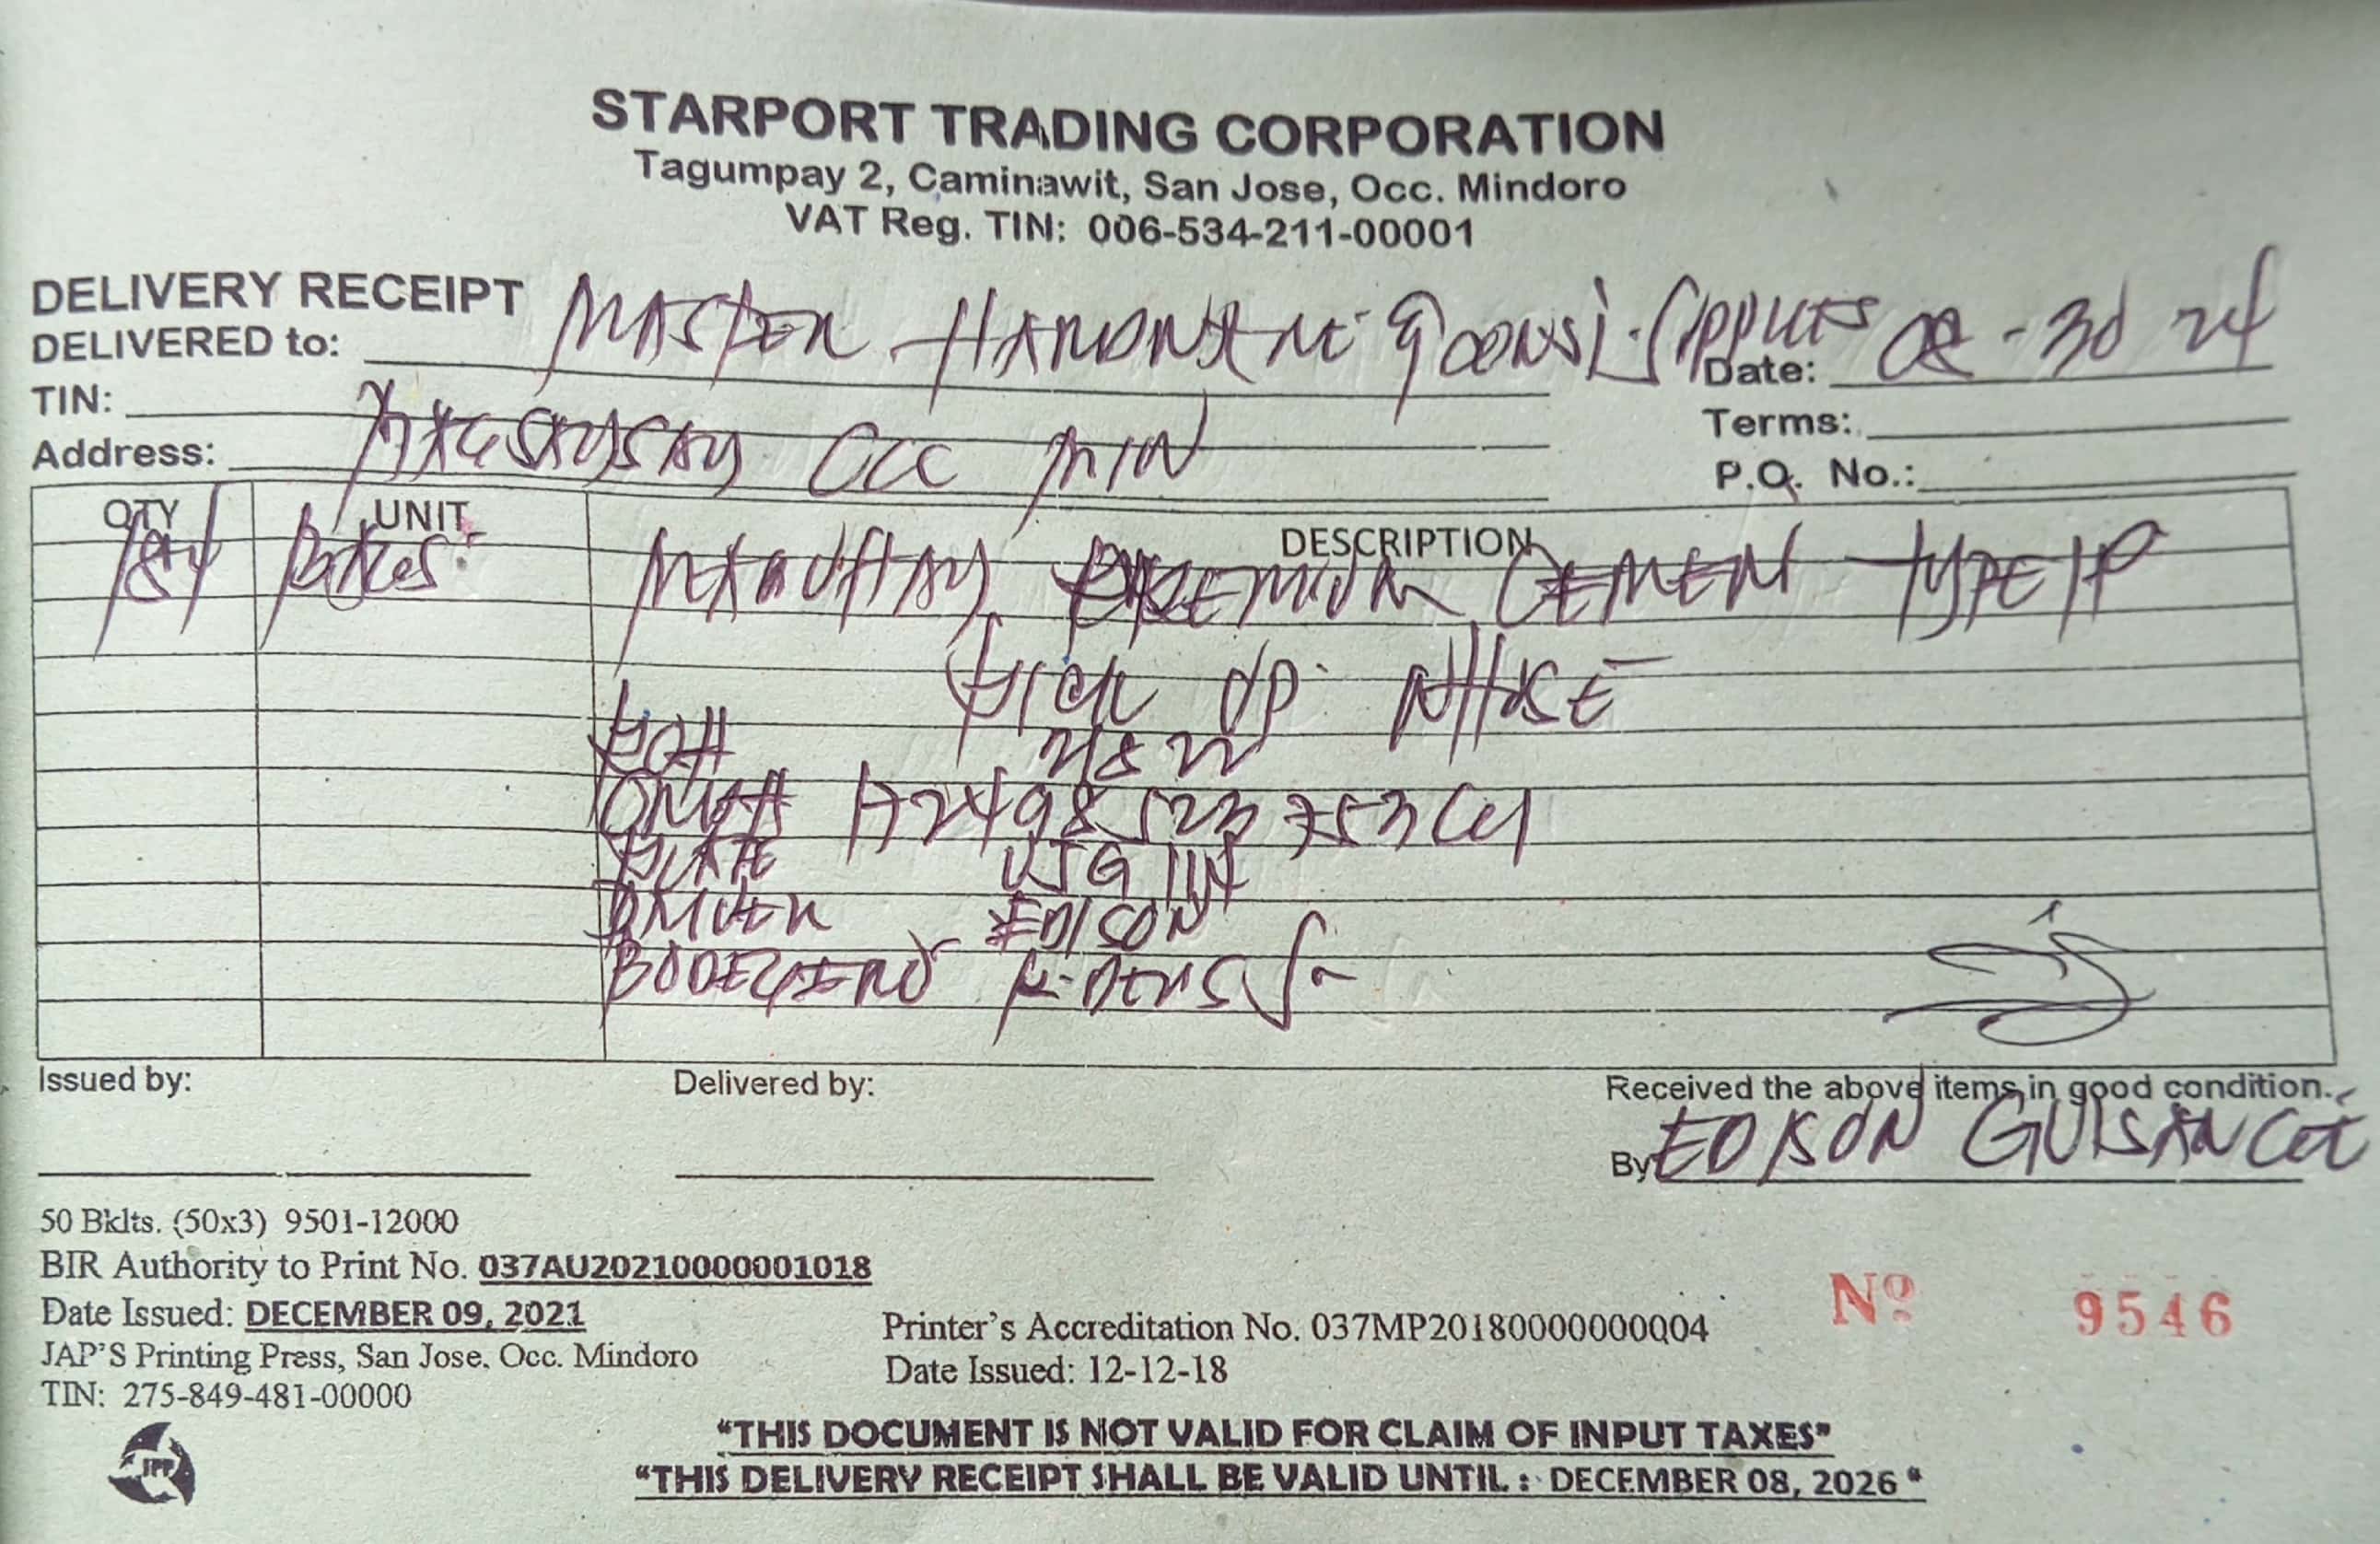 STARPORT TRADING CORPORATION
Tagumpay 2, Caminawit, San Jose, Occ. Mindoro
VAT Reg. TIN: 006-534-211-00001
DELIVERY RECEIPT
DELIVERED to: MASTER HARDWARE & CONSL. Date: 08-30 24
TIN:
Terms:
Address: MAGSAYSAY OCC MIN
P.O. No.:
QTY UNIT DESCRIPTION
184 PREMIUM CEMENT TYPE 1P
PICK UP WHSE
PO#
PLATE
DRIVER EDISON
BODEGERO
Issued by: Delivered by: Received the above items in good condition.
By EDISON
50 Bklts. (50x3) 9501-12000
BIR Authority to Print No. 037AU20210000001018
Date Issued: DECEMBER 09, 2021
JAP'S Printing Press, San Jose, Occ. Mindoro
TIN: 275-849-481-00000
Printer's Accreditation No. 037MP20180000000004
Date Issued: 12-12-18
Nº 9546
JPP
"THIS DOCUMENT IS NOT VALID FOR CLAIM OF INPUT TAXES"
"THIS DELIVERY RECEIPT SHALL BE VALID UNTIL : DECEMBER 08, 2026"